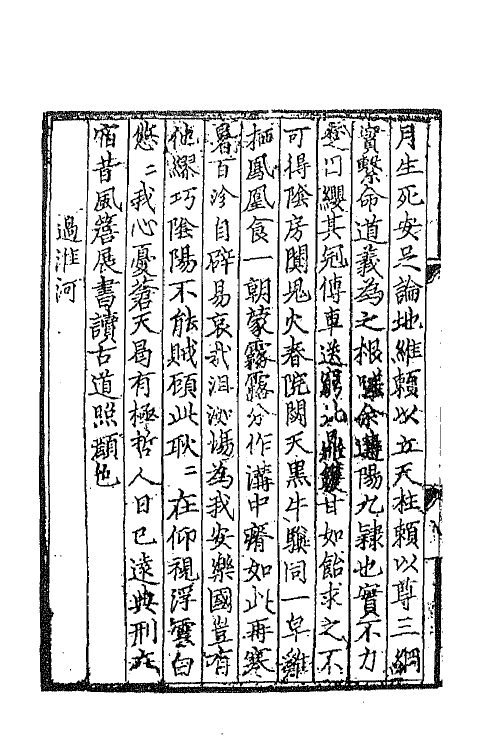 月生死安足論地維賴以立天柱賴以尊三綱
實繫命道義為之根嗟余遘陽九隸也實不力
楚囚纓其冠傳車送窮北鼎鑊甘如飴求之不
可得陰房闃鬼火春院閟天黑牛驥同一皁雞
栖鳳凰食一朝蒙霧露分作溝中瘠如此再寒
暑百沴自辟易哀哉沮洳場為我安樂國豈有
他繆巧陰陽不能賊顧此耿二在仰視浮雲白
悠二我心憂蒼天曷有極哲人日已遠典刑在
宿昔風簷展書讀古道照顏色
過淮河